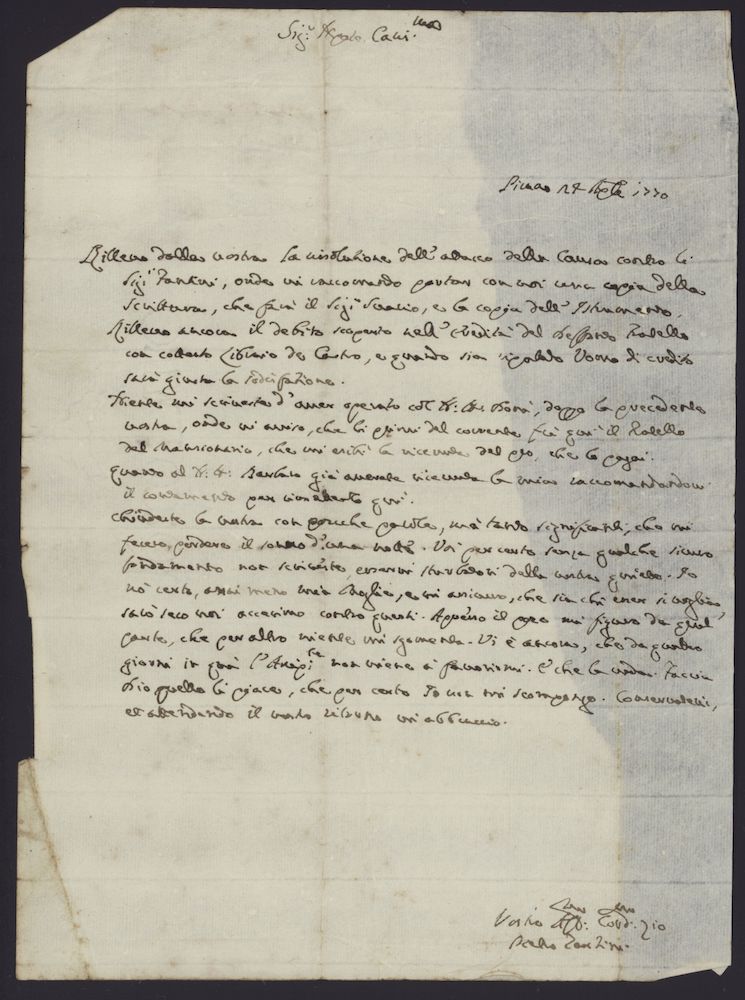 Sig.r Nipote Cariss.mo
Pirano 24 1770
Rillevo dalla vostra la risolutione dell' attacco della Causa contro li
Sig.i Fantini, onde vi raccomando portar con voi una copia della
Scrittura, che farà il Sig.r e la copia dell' Istrumento.
Rillevo ancora il debito scoperto nell' eredità del Deffonto Fratello
con cottesto Librario de Castro, e quando sia Uomo di credito
sarà giusta la sodisfazione.
Niente mi scriveste d'aver operato col doppo la precedente
vostra, onde vi avviso, che li primi del corrente fù quì il Fratello
del Mansionario, che mi esibì la ricevuta del pro, che le pagai.
Quanto al Barbaro già averete ricevuta la mia raccomandandovi
il contamento per rimetterlo quì.
Chiudeste la vostra con poche parole, mà tanto significanti, che mi
fecero perdere il sonno d'una notte. Voi per certo senza qualche sicuro
fondamento non scriveste, esservi sturbatori della vostra quiete. Io
nò certo, assai meno mia Moglie, e vi assicuro, che sia chi esser si voglia,
sarò seco voi acerrimo contro questi. Appresso il mi figuro da qual
parte, che per altro niente mi sgomenta. Vi è ancora, che da quattro
giorni in quà l' non viene a favorirmi. Faccia
Dio quello li piace, che per certo Io non mi scompongo. Conservatevi,
et attendendo il vostro ritorno vi abbraccio.
Vostro Aff.mo Cord.mo Zio
Pietro